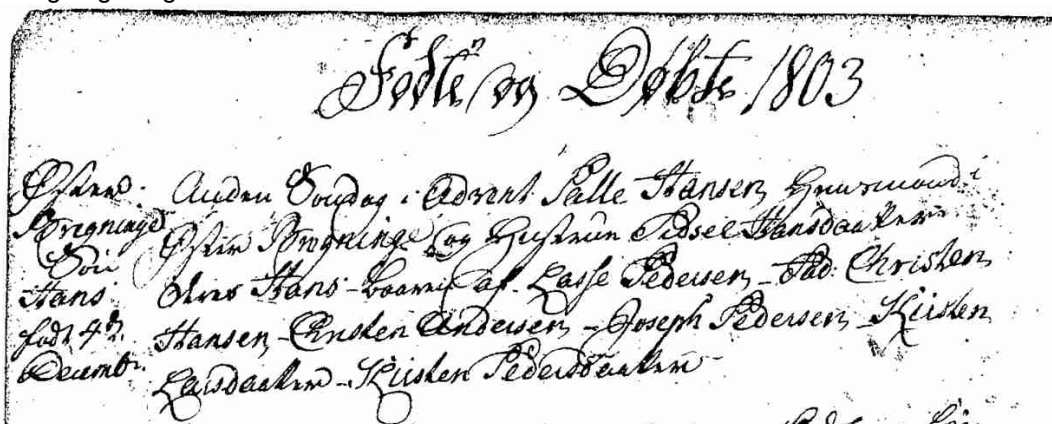 Fødte og Døbte 1803
Østre
Bregninge
Søn
Hans
født 4de
Decembr.
Anden Søndag i Advent Palle Hansen Huusmand i
Øster Bregninge og Hustrue Sidsel Hansdaatter
deres Hans baaren af Lasse Pedersen Fad: Christen
Hansen Christen Andersen Joseph Pedersen Kirsten
Larsdaatter Kirsten Pedersdaatter